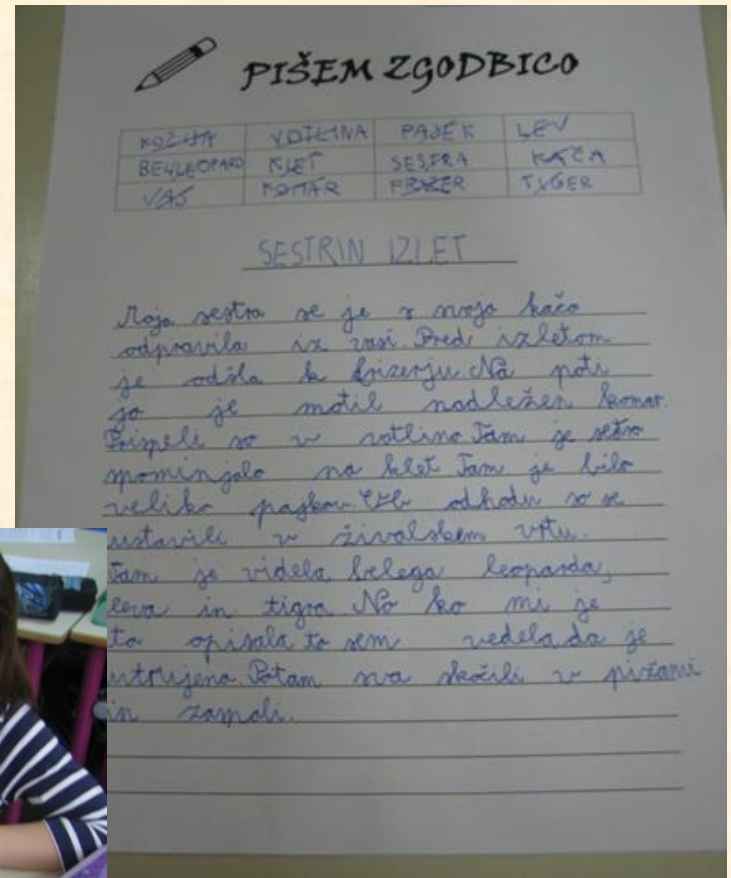 PIŠEM ZGODBICO
VOTLINA PAJEK LEV
BELI LEOPARD KLET SESTRA KAČA
VAS KOMAR FRIZER TIGER
SESTRIN IZLET
Moja sestra se je s svojo kačo
odpravila iz vasi. Pred izletom
je odšla k frizerju. Na poti
jo je motil nadležen komar.
Prispeli so v votlino. Tam je sestro
spominjalo na klet. Tam je bilo
veliko pajkov. Ob odhodu so se
ustavili v živalskem vrtu.
Tam je videla belega leoparda,
leva in tigra. No ko mi je
to opisala to sem vedela da je
utrujena. Potem sva skočili v pižami
in zaspali.